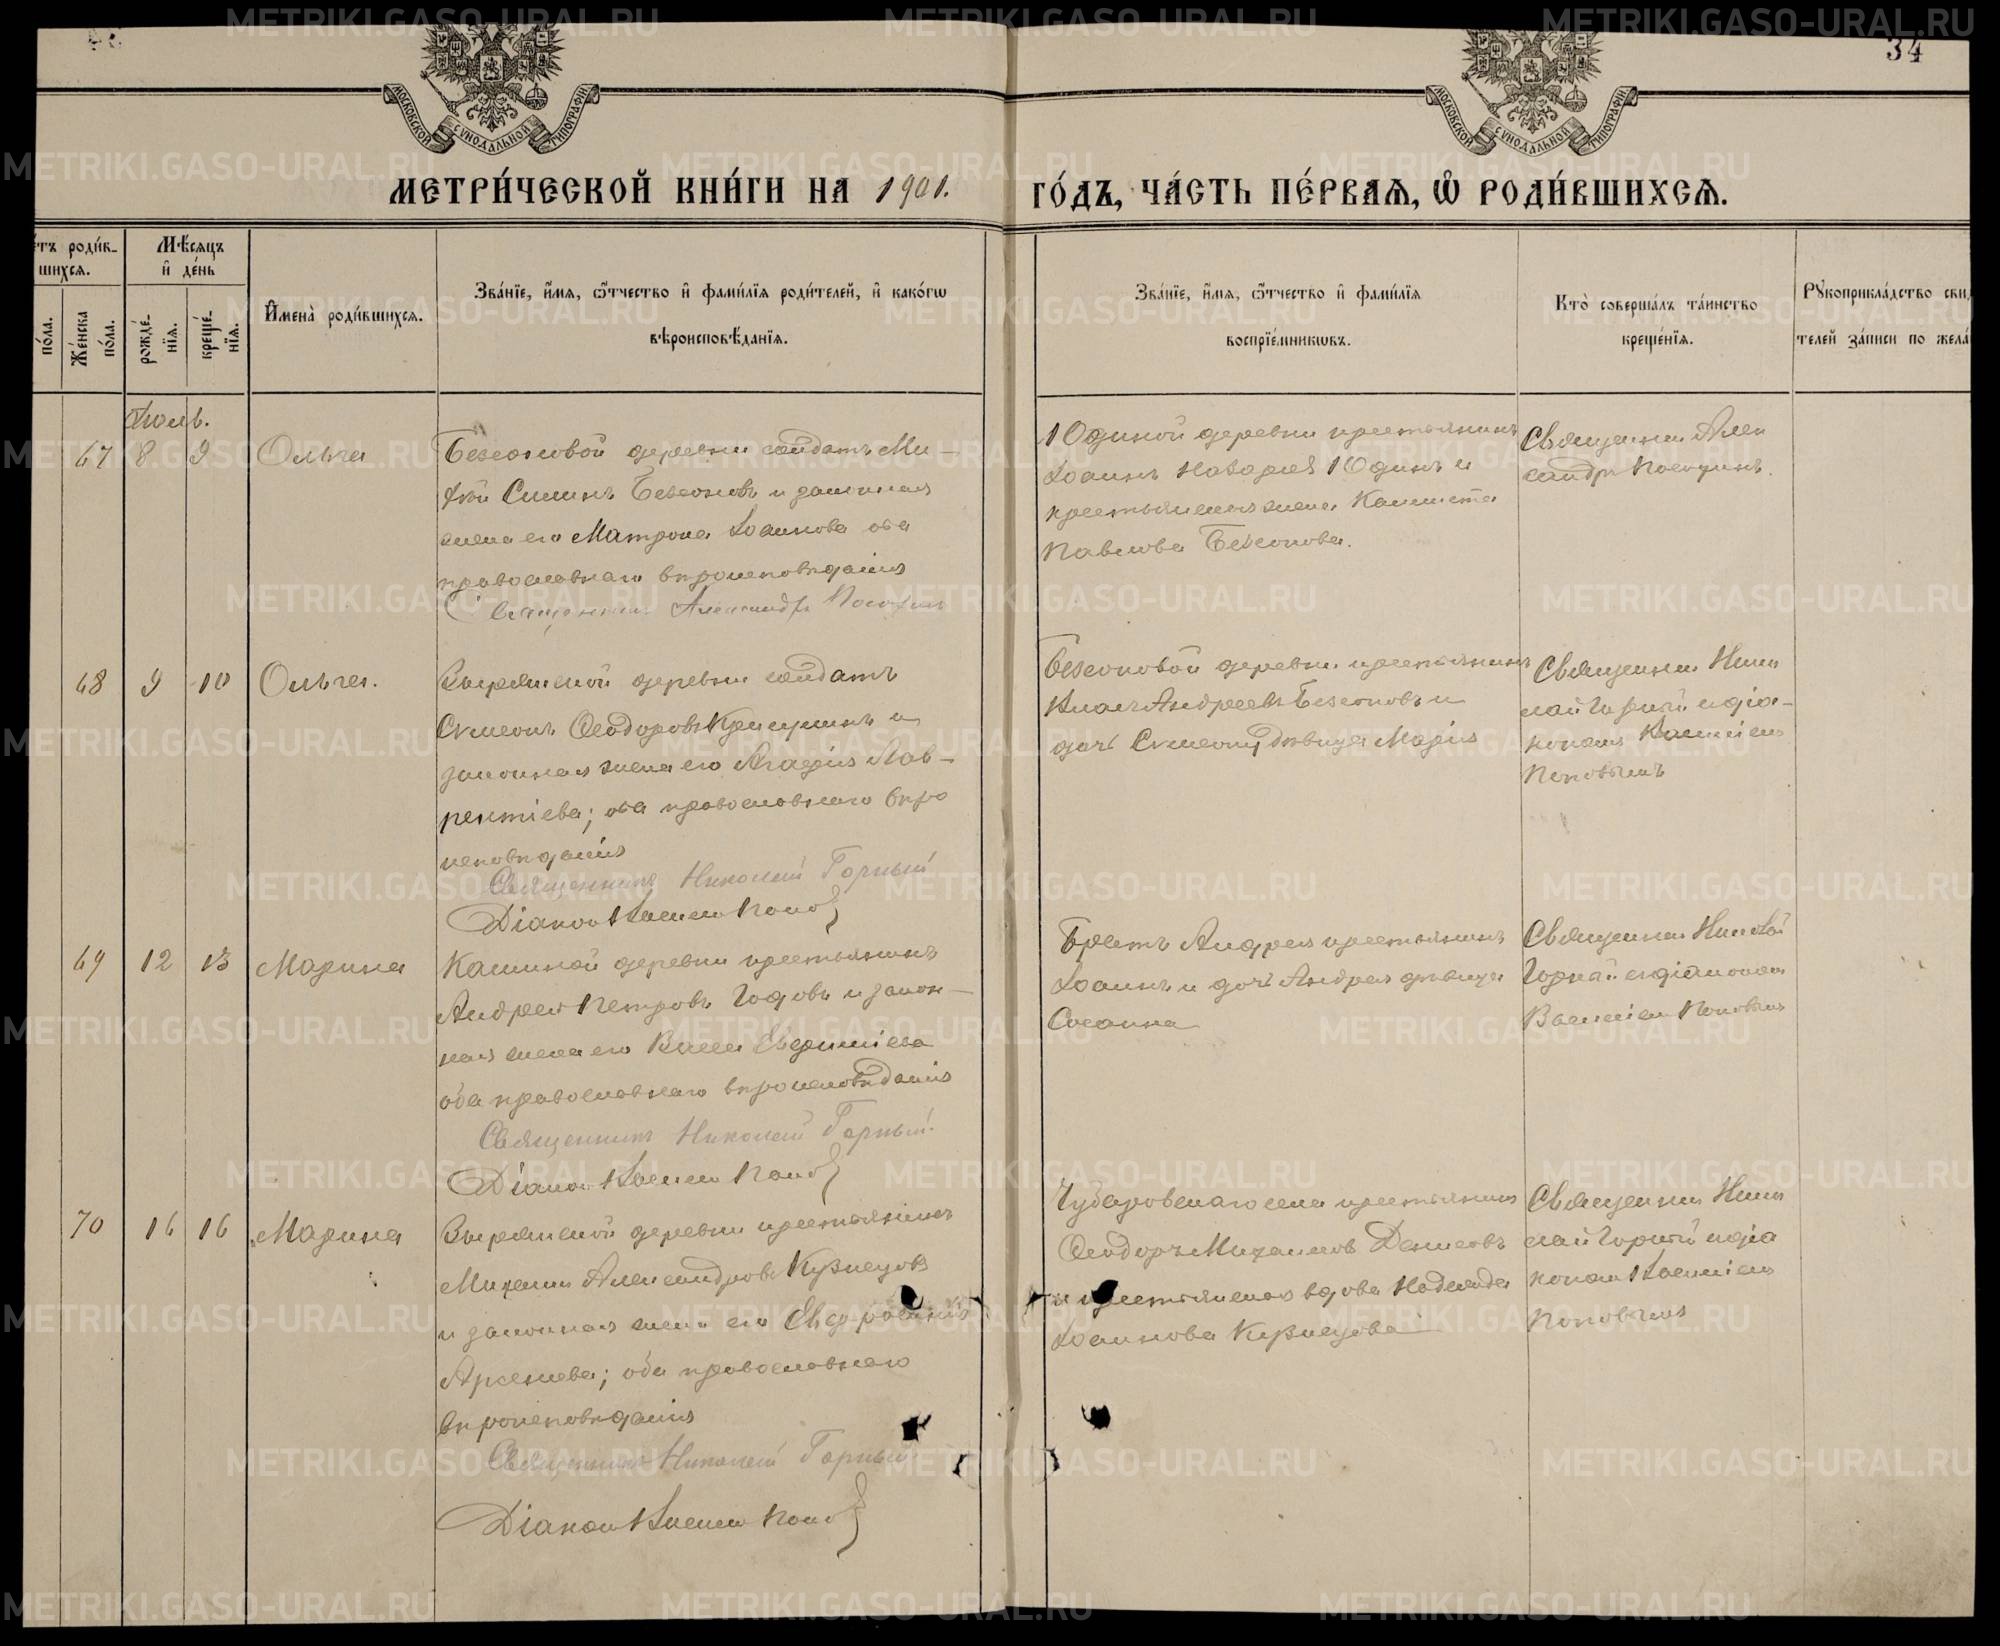 34
МОСКОВСКОЙ СѴНОДАЛЬНОЙ ТИПОГРАФІИ
МОСКОВСКОЙ СѴНОДАЛЬНОЙ ТИПОГРАФІИ
МЕТРИ́ЧЕСКОЙ КНИ́ГИ НА 1901. ГО́ДЪ, ЧА́СТЬ ПЕ́РВАѦ, Ѡ҆ РОДИ́ВШИХСѦ.
етъ роди́в-
шихсѧ.
по́ла.
Же́нска
по́ла.
Мѣ́сѧцъ
и҆ де́нь
рожде́-
нїѧ.
креще́-
нїѧ.
И҆мена̀ роди́вшихсѧ.
Зва́нїе, и҆́мѧ, ѻ҆́тчество и҆ фами́лїѧ роди́телей, и҆ како́гѡ
вѣроисповѣ́данїѧ.
Зва́нїе, и҆́мѧ, ѻ҆́тчество и҆ фами́лїѧ
воспрїе́мникѡвъ.
Кто̀ соверша́лъ та́инство
креще́нїѧ.
Рꙋкоприкла́дство сви
телей за́писи по жела́
Іюль.
67 8 9 Ольга
Безсоновой деревни солдатъ Ми-
Силинъ Безсоновъ и законная
жена его Матрона Іоаннова оба
православнаго вѣроисповѣданія
Священникъ Александръ
Юдиной деревни крестьянинъ
Іоаннъ Назаріевъ Юдинъ и
крестьянская жена
Павлова Безсонова.
Священникъ Алек
сандръ
68 9 10 Ольга.
деревни солдатъ
Симеонъ Ѳеодоровъ и
законная жена его Агафія Лав-
рентіева; оба православнаго вѣро
исповѣданія
Священникъ Николай Горный
Діаконъ Василій Поповъ
Безсоновой деревни крестьянинъ
Андреевъ Безсоновъ и
дочь Симеона дѣвица Марія
Священникъ Нико
лай Горный съ діа-
кономъ Василіемъ
Поповымъ
69 12 13 Марина
Кашиной деревни крестьянинъ
Андрей Петровъ Годовъ и закон-
ная жена его Васса Евфиміева
оба православнаго вѣроисповѣданія
Священникъ Николай Горный.
Діаконъ Василій Поповъ
Братъ Андрея крестьянинъ
Іоаннъ и дочь Андрея дѣвица
Сосанна
Священникъ Николай
Горный съ діакономъ
Василіемъ Поповымъ
70 16 16 Марина
деревни крестьянинъ
Михаилъ Александровъ Кузнецовъ
и законная жена его Евфросинія
Арсеніева; оба православнаго
вѣроисповѣданія
Священникъ Николай Горный.
Діаконъ Василій Поповъ
Чубаровскаго села крестьянинъ
Ѳеодоръ Михаиловъ Денисовъ
и крестьянская вдова Надежда
Іоаннова Кузнецова
Священникъ Нико
лай Горный съ діа
кономъ Василіемъ
Поповымъ
METRIKI.GASO-URAL.RU